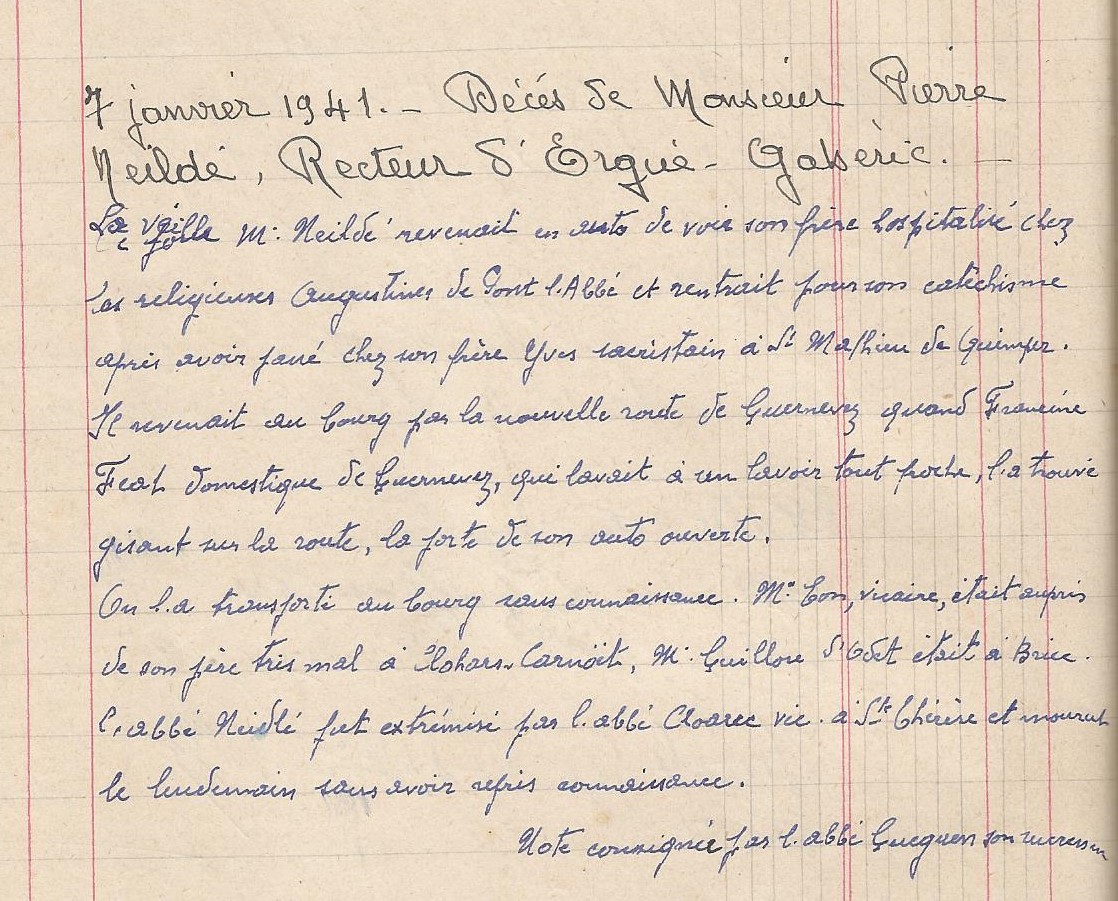 7 janvier 1941. - Décés de Monsieur Pierre
Neildé, Recteur d'Ergué-Gabéric. -
La veille M. Neildé revenait en auto de voir son frère hospitalisé chez
les religieuses Augustines de Pont l'Abbé et rentrait pour son catéchisme
après avoir passé chez son frère Yves sacristain à St Mathieu de Quimper.
Il revenait au bourg par la nouvelle route de Guernevez quand Francine
Feat domestique de Guernevez, qui lavait à un lavoir tout proche, l'a trouvé
gisant sur la route, la porte de son auto ouverte.
On l'a transporté au bourg sans connaissance. M. Con, vicaire, était auprès
de son père très mal à Clohars-Carnoët, M. Guillou d'Odet était à Briec.
L'abbé Neidlé fut extrémisé par l'abbé Cloarec vic. à Ste Thérèse et mourut
le lendemain sans avoir repris connaissance.
Note consignée par l'abbé Gueguen son successeur